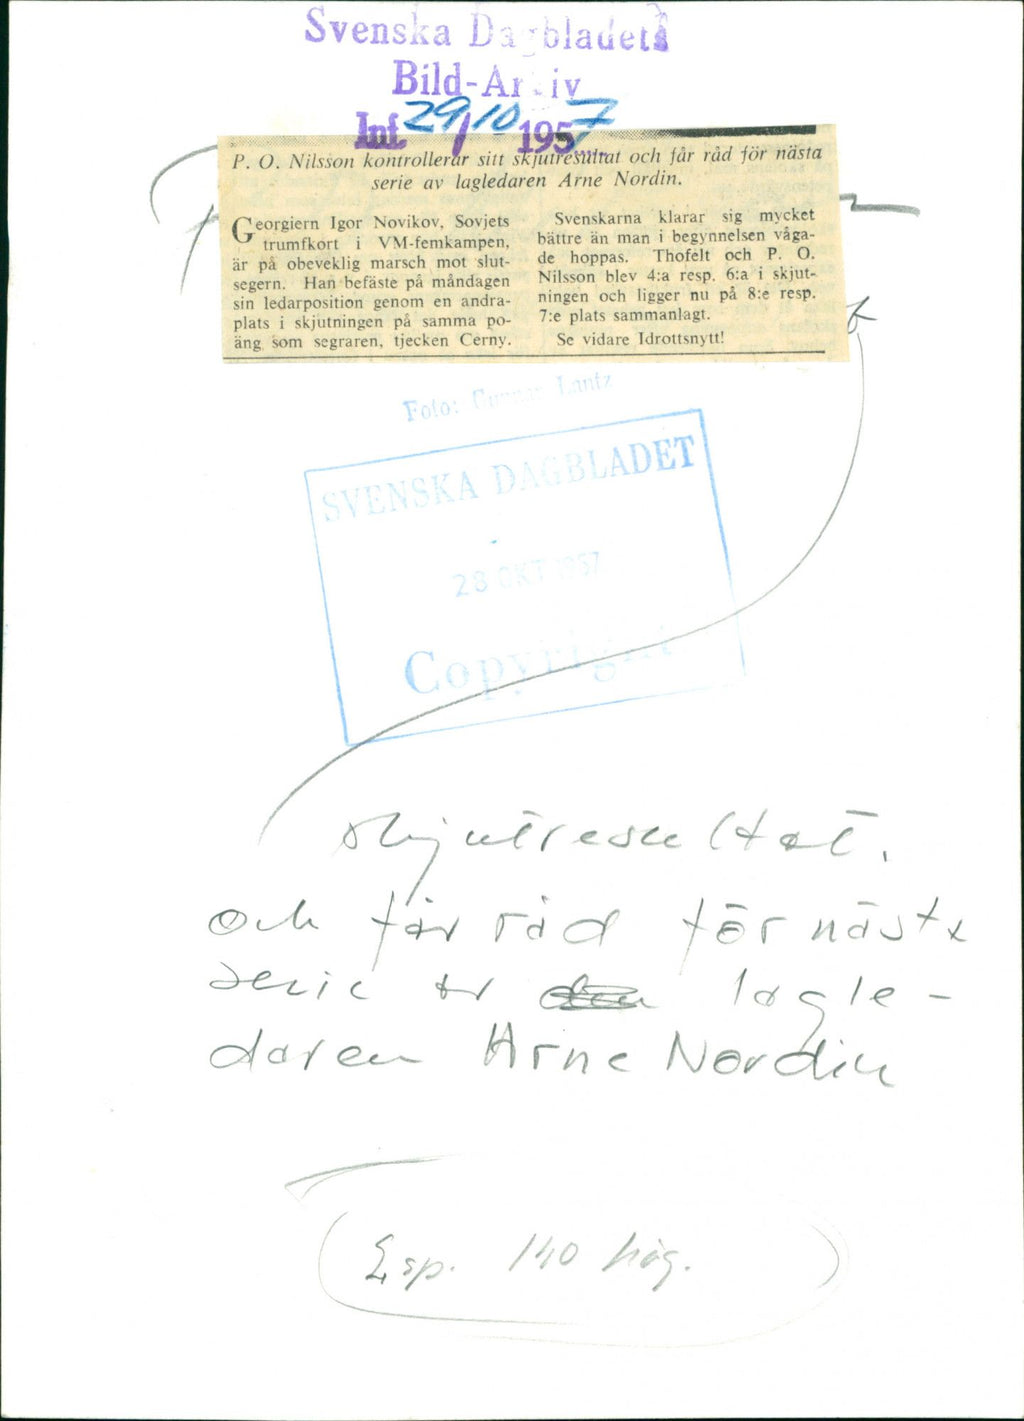 Svenska Dagbladets
Bild-Arkiv
Inf. 29/10 1957
P. O. Nilsson kontrollerar sitt skjutresultat och får råd för nästa
serie av lagledaren Arne Nordin.
Georgiern Igor Novikov, Sovjets
trumfkort i VM-femkampen,
är på obeveklig marsch mot slut-
segern. Han befäste på måndagen
sin ledarposition genom en andra-
plats i skjutningen på samma po-
äng som segraren, tjecken Cerny.
Svenskarna klarar sig mycket
bättre än man i begynnelsen våga-
de hoppas. Thofelt och P. O.
Nilsson blev 4:a resp. 6:a i skjut-
ningen och ligger nu på 8:e resp.
7:e plats sammanlagt.
Se vidare Idrottsnytt!
Foto: Gunnar Lantz
SVENSKA DAGBLADET
28 OKT 1957
Copyright
skjutresultat.
och får råd för nästa
serie av lagle-
daren Arne Nordin
Esp. 140 hög.